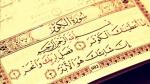 سُورَةُ الكَوْثَرِ
بِسْمِ اللَّهِ الرَّحْمَٰنِ الرَّحِيمِ
إِنَّا أَعْطَيْنَاكَ الْكَوْثَرَ فَصَلِّ لِرَبِّكَ وَانْحَرْ
إِنَّ شَانِئَكَ هُوَ الْأَبْتَرُ